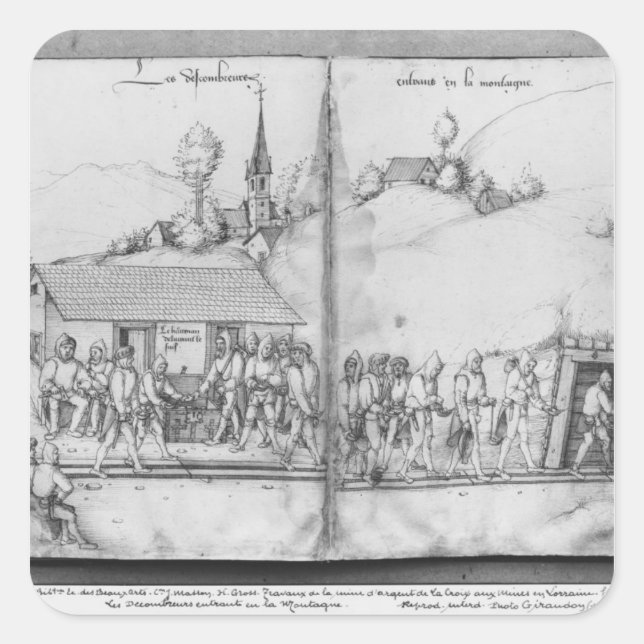 Les descombreurs
entrans en la montaigne.
Le hutman
delivrant le
suif
Bibl^que de des Beaux Arts. C^on J. Masson, H. Gross. Travaux de la mine d'argent de La Croix aux Mines en Lorraine.
Les Décombreurs entrant en la Montagne. Reprod. interd. Photo Giraudon